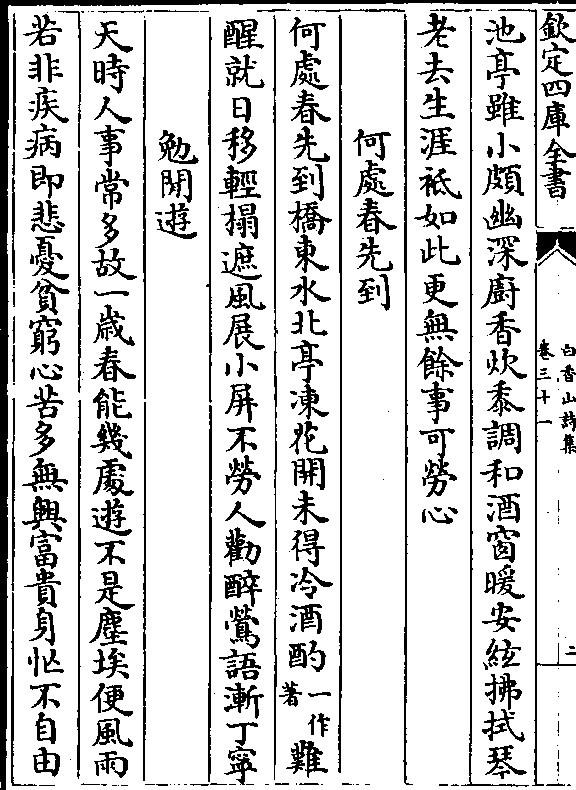 欽定四庫全書
白香山詩集
卷三十一
二
池亭雖小頗幽深廚香炊黍調和酒窗暖安絃拂拭琴
老去生涯祇如此更無餘事可勞心
何處春先到
何處春先到橋東水北亭凍花開未得冷酒酌一作著難
醒就日移輕榻遮風展小屏不勞人勸醉鶯語漸丁寧
勉閒遊
天時人事常多故一歲春能幾處遊不是塵埃便風雨
若非疾病即悲憂貧窮心苦多無興富貴身忙不自由